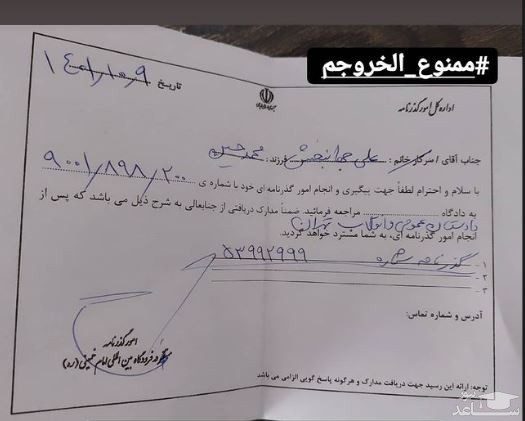 #ممنوع_الخروجم
تاریخ ۱۴۰۱/۰۹
اداره کل امور گذرنامه
جناب آقای / سرکار خانم: علی جهانبخش فرزند: محمد حسین
با سلام و احترام لطفاً جهت پیگیری و انجام امور گذرنامه ای خود با شماره ی ۹۰۰۱/۸۹۸/۲۰۰
به دادگاه مراجعه فرمائید. ضمناً مدارک دریافتی از جنابعالی به شرح ذیل می باشد که پس از
دادستان عمومی و انقلاب تهران
انجام امور گذرنامه ای، به شما مسترد خواهد گردید.
۱ - گذرنامه شماره ۵۳۹۹۲۹۹۹
۲ -
۳ -
آدرس و شماره تماس:
امور گذرنامه
فرودگاه بین المللی امام خمینی (ره)
توجه: ارائه این رسید جهت دریافت مدارک و هرگونه پاسخ گویی الزامی می باشد